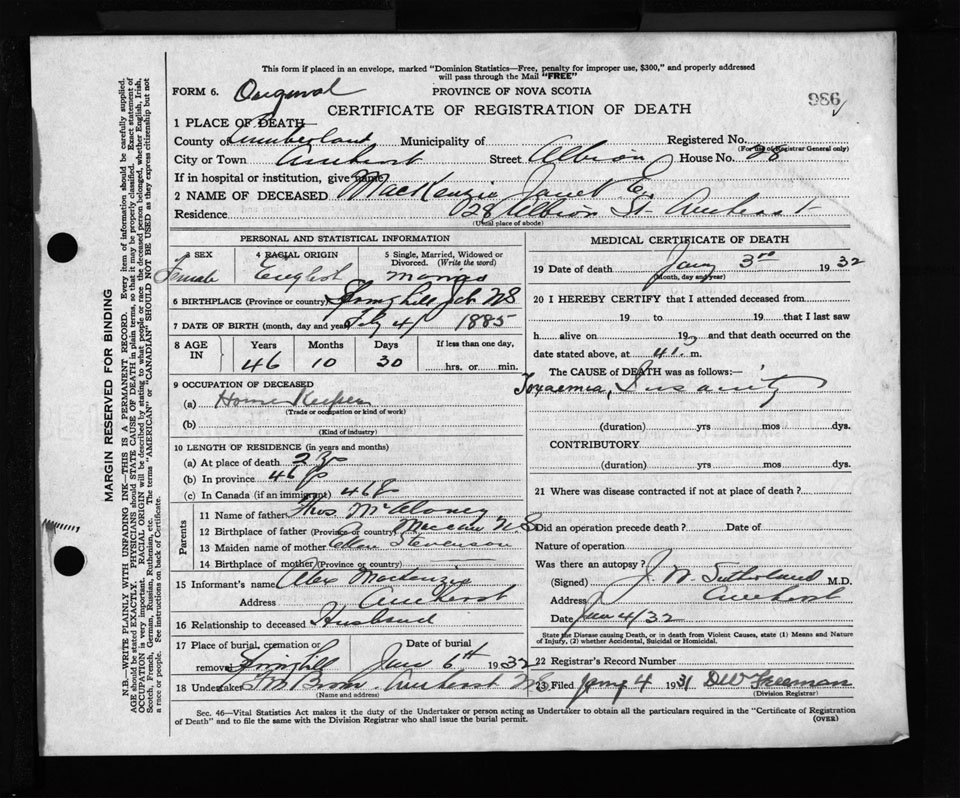 This form if placed in an envelope, marked "Dominion Statistics—Free, penalty for improper use, $300," and properly addressed
will pass through the Mail "FREE"
FORM 6. Original PROVINCE OF NOVA SCOTIA
986
CERTIFICATE OF REGISTRATION OF DEATH
1 PLACE OF DEATH
County of Cumberland Municipality of Registered No.
(For use of Registrar General only)
City or Town Amherst Street Albion House No. 28
If in hospital or institution, give name
2 NAME OF DECEASED MacKenzie Janet
Residence 28 Albion St Amherst
(Usual place of abode)
PERSONAL AND STATISTICAL INFORMATION
3 SEX 4 RACIAL ORIGIN 5 Single, Married, Widowed or Divorced. (Write the word)
Female English
6 BIRTHPLACE (Province or country) Springhill Jct NS
7 DATE OF BIRTH (month, day and year) 4 1885
8 AGE IN Years Months Days If less than one day,
46 10 30 hrs. or min.
9 OCCUPATION OF DECEASED
(a) House Keeper
(Trade or occupation or kind of work)
(b)
(Kind of industry)
10 LENGTH OF RESIDENCE (in years and months)
(a) At place of death
(b) In province 46
(c) In Canada (if an immigrant) 46
Parents
11 Name of father Thos McAloney
12 Birthplace of father (Province or country) Maccan N.S
13 Maiden name of mother Stevenson
14 Birthplace of mother (Province or country)
15 Informant's name Alex Mackenzie
Address Amherst
16 Relationship to deceased Husband
17 Place of burial, cremation or removal Springhill Date of burial Jany 6th 1932
18 Undertaker Brown Amherst NS
(Name and address)
MEDICAL CERTIFICATE OF DEATH
19 Date of death Jany 3rd 1932
(Month, day and year)
20 I HEREBY CERTIFY that I attended deceased from
19 to 19 that I last saw
h alive on 19 and that death occurred on the
date stated above, at m.
The CAUSE of DEATH was as follows:
Toxaemia, Insanity
(duration) yrs mos dys.
CONTRIBUTORY
(duration) yrs mos dys.
21 Where was disease contracted if not at place of death?
Did an operation precede death? Date of
Nature of operation
Was there an autopsy?
(Signed) J. W. Sutherland M.D.
Address Amherst
Date Jan 4/32
State the Disease causing Death, or in death from Violent Causes, state (1) Means and Nature
of Injury, (2) whether Accidental, Suicidal or Homicidal.
22 Registrar's Record Number
23 Filed Jany 4 1931 DW Freeman
(Division Registrar)
Sec. 46—Vital Statistics Act makes it the duty of the Undertaker or person acting as Undertaker to obtain all the particulars required in the "Certificate of Registration
of Death" and to file the same with the Division Registrar who shall issue the burial permit.
(OVER)
MARGIN RESERVED FOR BINDING
N.B.—WRITE PLAINLY WITH UNFADING INK—THIS IS A PERMANENT RECORD. Every item of information should be carefully supplied.
AGE should be stated EXACTLY. PHYSICIANS should STATE CAUSE OF DEATH in plain terms, so that it may be properly classified. Exact statement of
OCCUPATION is very important. RACIAL ORIGIN will be described by stating to what people or race the deceased person belonged, whether English, Irish,
Scotch, French, German, Russian, Ruthenian, etc. The terms "AMERICAN" or "CANADIAN" SHOULD NOT BE USED as they express citizenship but not
a race or people. See instructions on back of Certificate.